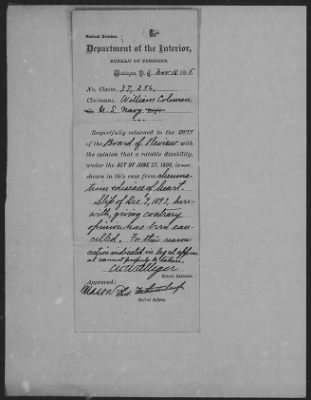 Medical Division.
Department of the Interior,
BUREAU OF PENSIONS,
Washington, D. C., Nov 12, 189
No. Claim, 27,286,
Claimant, William Coleman
U. S. Navy
Respectfully returned to the CHIEF
of the Board of Review with
the opinion that a ratable disability,
under the ACT OF JUNE 27, 1890, is now
shown in this case from rheuma-
tism & disease of heart.
Slip of Dec 7, 1893, here-
with, giving contrary
opinion has been can-
celled. For this reason
action indicated in legal
cannot properly be taken.
Medical Examiner.
Approved:
Medical Referee.